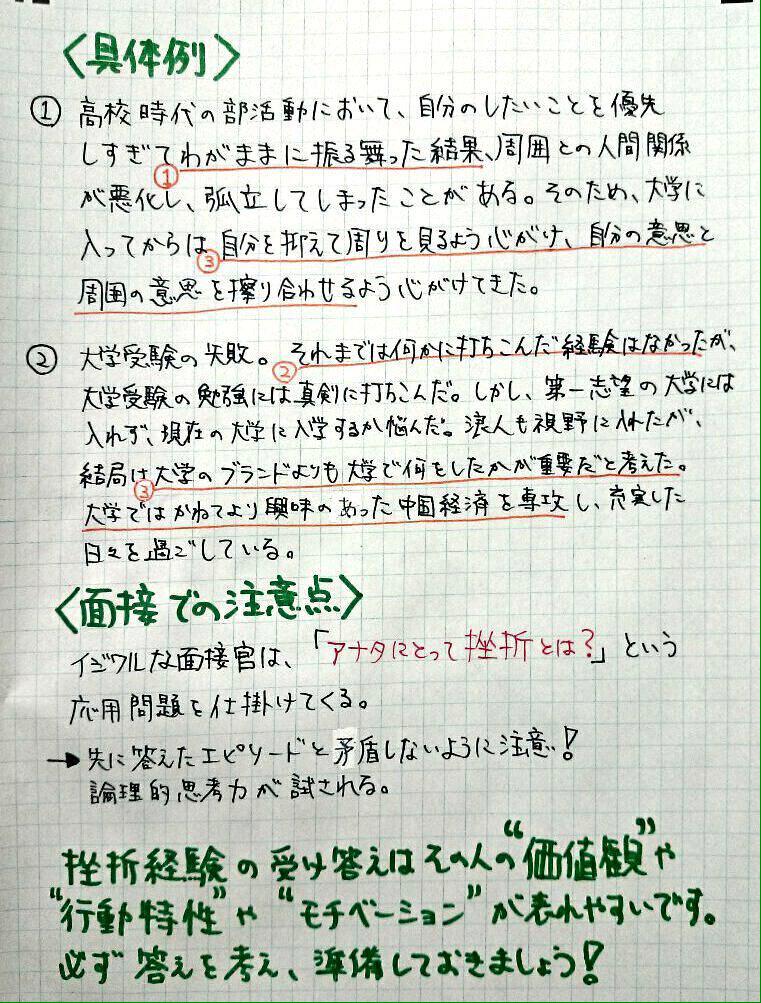 〈具体例〉
① 高校時代の部活動において、自分のしたいことを優先
しすぎてわがままに振る舞った結果、周囲との人間関係
①
が悪化し、孤立してしまったことがある。そのため、大学に
入ってからは自分を抑えて周りを見るよう心がけ、自分の意思と
③
周囲の意思を擦り合わせるよう心がけてきた。
② 大学受験の失敗。それまでは何かに打ちこんだ経験はなかったが、
②
大学受験の勉強には真剣に打ちこんだ。しかし、第一志望の大学には
入れず、現在の大学に入学するか悩んだ。浪人も視野に入れたが、
結局は大学のブランドよりも大学で何をしたかが重要だと考えた。
③
大学ではかねてより興味のあった中国経済を専攻し、充実した
日々を過ごしている。
〈面接での注意点〉
イジワルな面接官は、「アナタにとって挫折とは?」という
応用問題を仕掛けてくる。
→先に答えたエピソードと矛盾しないように注意!
論理的思考力が試される。
挫折経験の受け答えはその人の“価値観”や
“行動特性”や“モチベーション”が表れやすいです。
必ず答えを考え、準備しておきましょう!